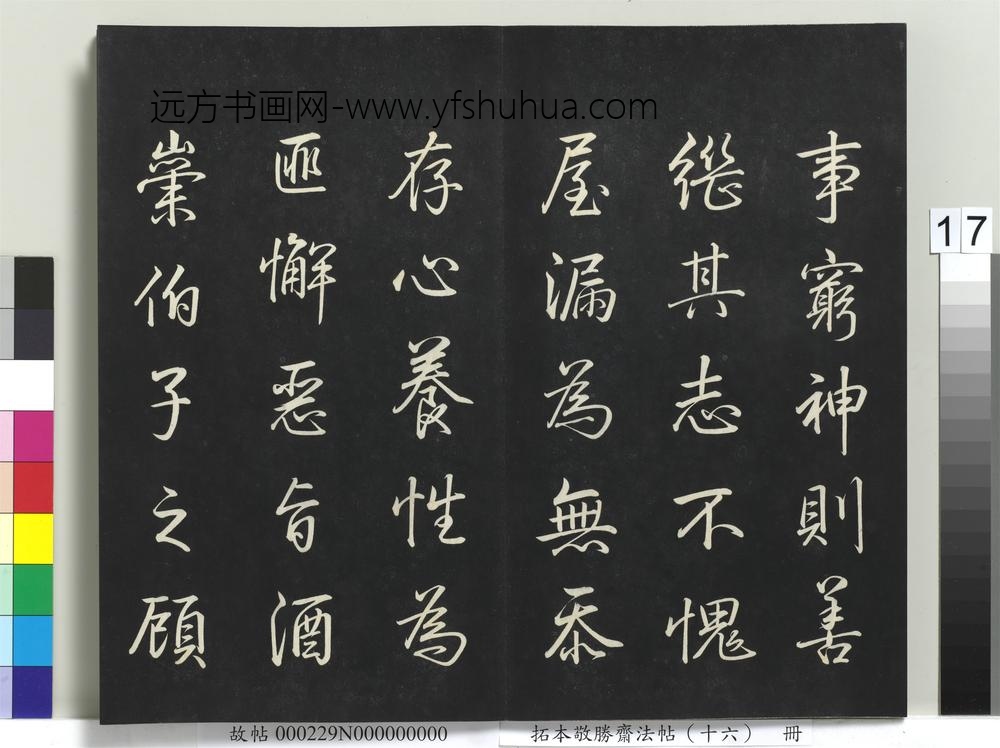 远方书画网-www.yfshuhua.com
事窮神則善
繼其志不愧
屋漏為無忝
存心養性為
匪懈惡旨酒
崇伯子之顧
17
故帖 000229N000000000
拓本敬勝齋法帖（十六） 冊